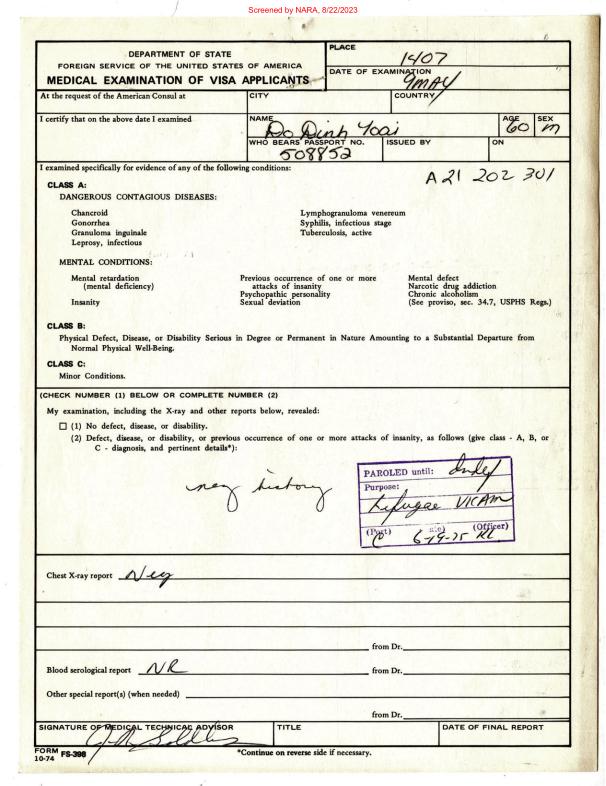 Screened by NARA, 8/22/2023
DEPARTMENT OF STATE
FOREIGN SERVICE OF THE UNITED STATES OF AMERICA
MEDICAL EXAMINATION OF VISA APPLICANTS
PLACE
1407
DATE OF EXAMINATION
9 MAY
At the request of the American Consul at
CITY
COUNTRY
I certify that on the above date I examined
NAME
Do Dinh Toai
AGE
60
SEX
M
WHO BEARS PASSPORT NO.
508852
ISSUED BY
ON
I examined specifically for evidence of any of the following conditions:
A 21 202 301
CLASS A:
DANGEROUS CONTAGIOUS DISEASES:
Chancroid
Gonorrhea
Granuloma inguinale
Leprosy, infectious
Lymphogranuloma venereum
Syphilis, infectious stage
Tuberculosis, active
MENTAL CONDITIONS:
Mental retardation
(mental deficiency)
Insanity
Previous occurrence of one or more
attacks of insanity
Psychopathic personality
Sexual deviation
Mental defect
Narcotic drug addiction
Chronic alcoholism
(See proviso, sec. 34.7, USPHS Regs.)
CLASS B:
Physical Defect, Disease, or Disability Serious in Degree or Permanent in Nature Amounting to a Substantial Departure from
Normal Physical Well-Being.
CLASS C:
Minor Conditions.
(CHECK NUMBER (1) BELOW OR COMPLETE NUMBER (2)
My examination, including the X-ray and other reports below, revealed:
(1) No defect, disease, or disability.
(2) Defect, disease, or disability, or previous occurrence of one or more attacks of insanity, as follows (give class - A, B, or
C - diagnosis, and pertinent details*):
neg history
PAROLED until: Indef
Purpose:
Refugee VICAM
(Port) (Officer)
6-19-75
Chest X-ray report Neg
from Dr.
Blood serological report NR
from Dr.
Other special report(s) (when needed)
from Dr.
SIGNATURE OF MEDICAL TECHNICAL ADVISOR
TITLE
DATE OF FINAL REPORT
FORM FS-398
10-74
*Continue on reverse side if necessary.